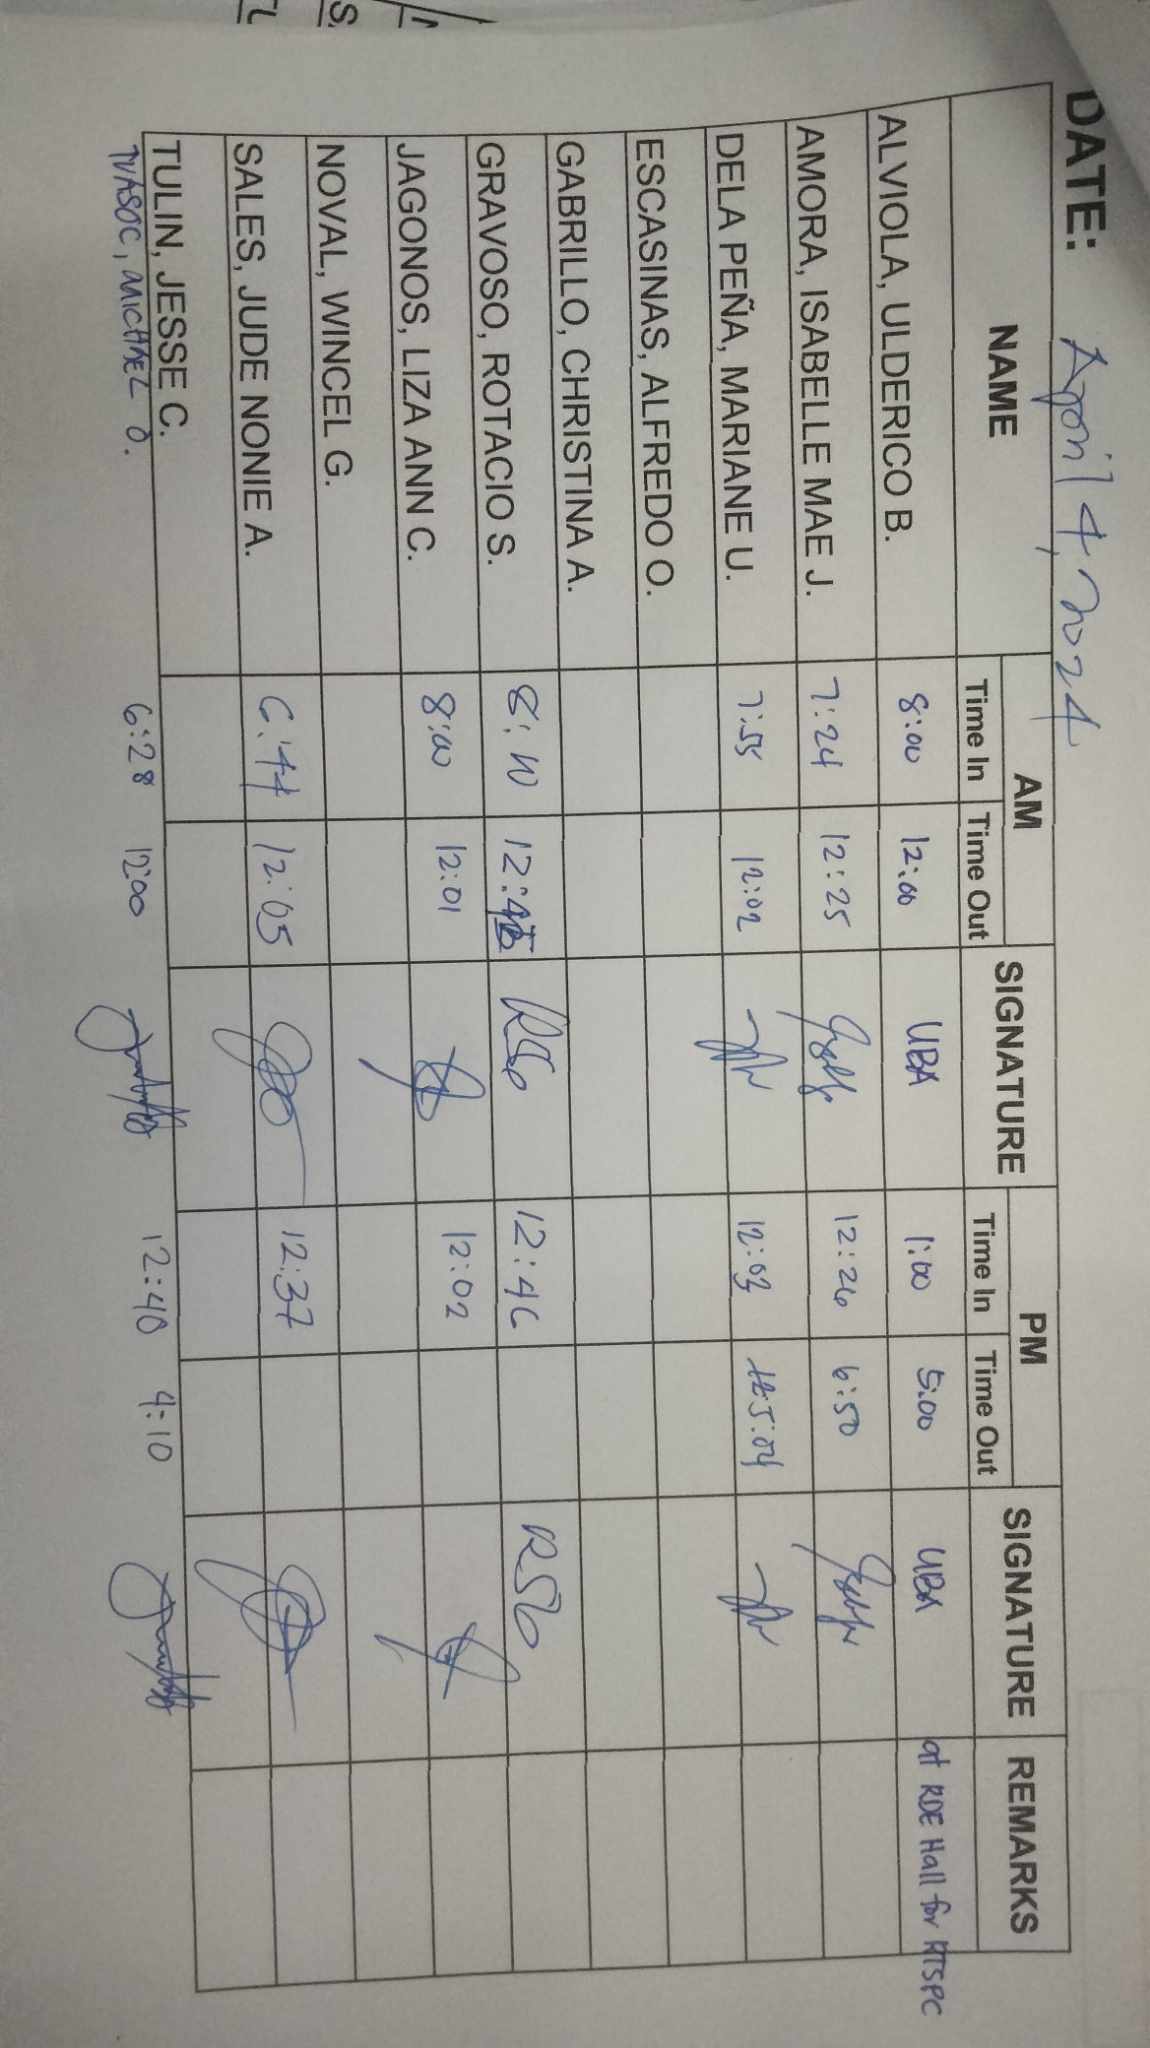 DATE: April 4, 2024
NAME AM SIGNATURE PM SIGNATURE REMARKS
Time In Time Out Time In Time Out
ALVIOLA, ULDERICO B. 8:00 12:00 UBA 1:00 5:00 UBA at RDE Hall for RTSPC
AMORA, ISABELLE MAE J. 7:24 12:25 12:26 6:50
DELA PEÑA, MARIANE U. 7:55 12:02 12:03 5:04
ESCASINAS, ALFREDO O.
GABRILLO, CHRISTINA A.
GRAVOSO, ROTACIO S. 8:10 12:45 RSG 12:46 RSG
JAGONOS, LIZA ANN C. 8:00 12:01 12:02
NOVAL, WINCEL G.
SALES, JUDE NONIE A. 6:44 12:05 12:37
TULIN, JESSE C.
TVASOC, MICHAEL O. 6:28 12:00 12:40 4:10